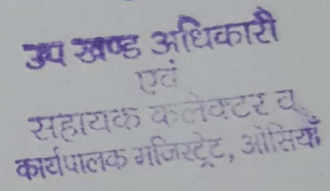 उप खण्ड अधिकारी
एवं
सहायक कलेक्टर व्
कार्यपालक मजिस्ट्रेट, ओसियाँ